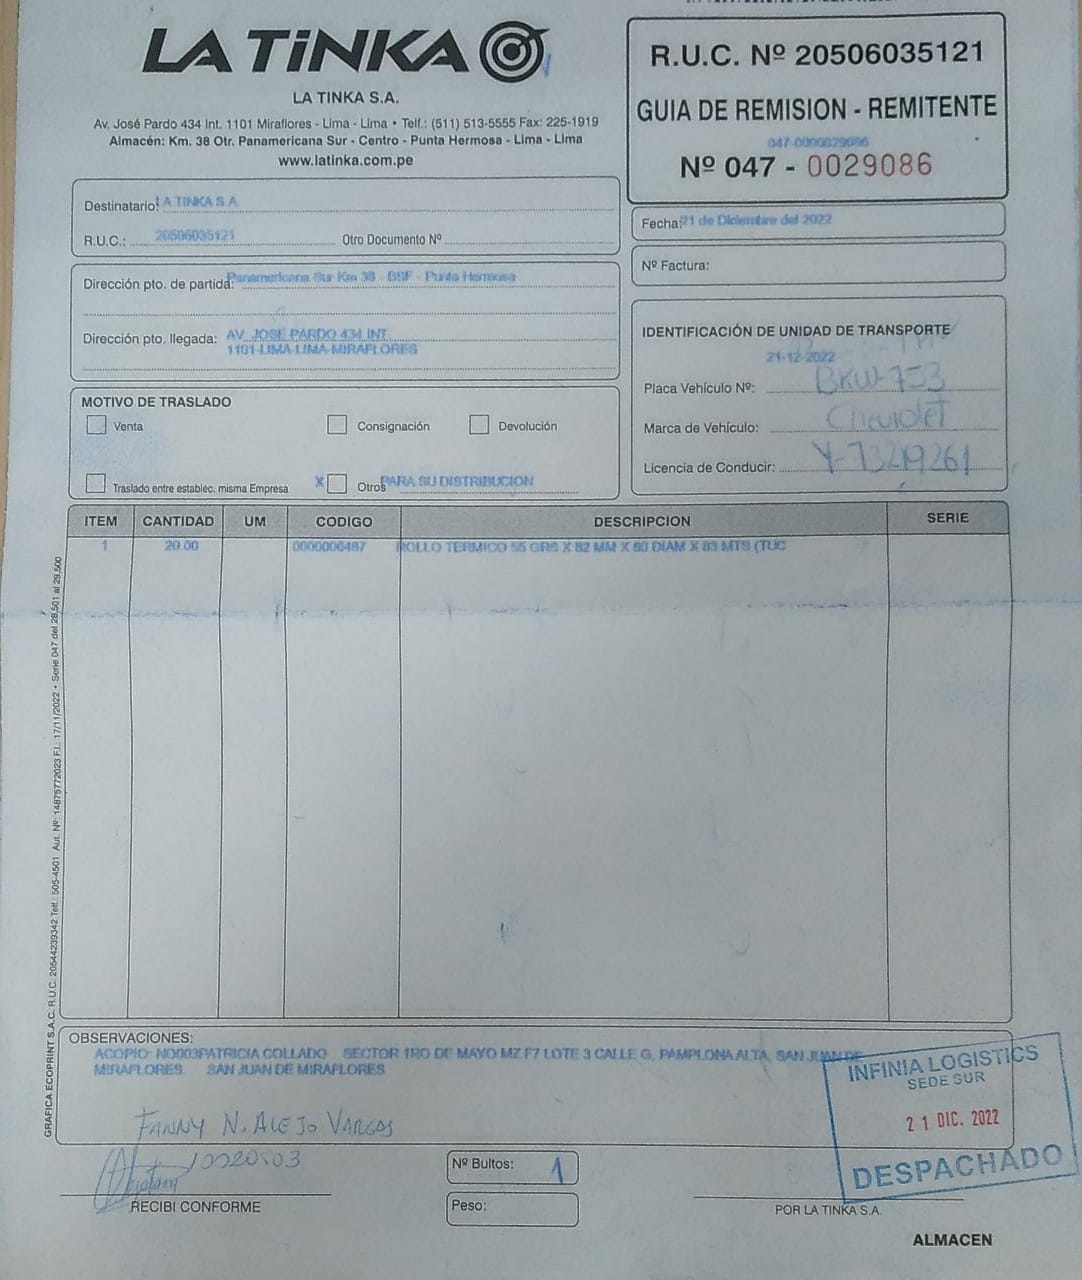 LA TiNKA
LA TINKA S.A.
Av. José Pardo 434 Int. 1101 Miraflores - Lima - Lima • Telf.: (511) 513-5555 Fax: 225-1919
Almacén: Km. 38 Otr. Panamericana Sur - Centro - Punta Hermosa - Lima - Lima
www.latinka.com.pe
R.U.C. Nº 20506035121
GUIA DE REMISION - REMITENTE
047-0000029086
Nº 047 - 0029086
Destinatario: LA TINKA S.A.
R.U.C.: 20506035121 Otro Documento Nº
Fecha: 21 de Diciembre del 2022
Nº Factura:
Dirección pto. de partida: Panamericana Sur Km 38 - BSF - Punta Hermosa
Dirección pto. llegada: AV. JOSE PARDO 434 INT.
1101-LIMA-LIMA-MIRAFLORES
IDENTIFICACIÓN DE UNIDAD DE TRANSPORTE
21-12-2022
Placa Vehículo Nº: BKW-753
Marca de Vehículo: Chevrolet
Licencia de Conducir: Y-73219261
MOTIVO DE TRASLADO
Venta Consignación Devolución
Traslado entre establec. misma Empresa X Otros PARA SU DISTRIBUCION
ITEM CANTIDAD UM CODIGO DESCRIPCION SERIE
1 20.00 0000006487 ROLLO TERMICO 55 GRS X 82 MM X 60 DIAM X 83 MTS (TUC
GRAFICA ECOPRINT S.A.C. R.U.C. 20544239342 Telf.: 505-4501 Aut. Nº: 14875772023 F.I.: 17/11/2022 • Serie 047 del 28,501 al 29,500
OBSERVACIONES:
ACOPIO: NO003PATRICIA COLLADO SECTOR 1RO DE MAYO MZ F7 LOTE 3 CALLE G, PAMPLONA ALTA, SAN JUAN DE
MIRAFLORES SAN JUAN DE MIRAFLORES
INFINIA LOGISTICS
SEDE SUR
21 DIC. 2022
DESPACHADO
FANNY N. ALEJO VARGAS
10020503
RECIBI CONFORME
Nº Bultos: 1
Peso:
POR LA TINKA S.A.
ALMACEN